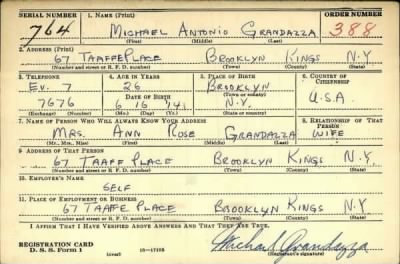 SERIAL NUMBER 1. NAME (Print) ORDER NUMBER
764 MICHAEL ANTONIO GRANDAZZA 388
(First) (Middle) (Last)
2. ADDRESS (Print)
67 TAAFFE PLACE BROOKLYN KINGS N.Y
(Number and street or R. F. D. number) (Town) (County) (State)
3. TELEPHONE 4. AGE IN YEARS 5. PLACE OF BIRTH 6. COUNTRY OF CITIZENSHIP
EV. 7 26 BROOKLYN
DATE OF BIRTH (Town or county)
7676 6 16 N.Y. U.S.A.
(Exchange) (Number) (Mo.) (Day) (Yr.) (State or country)
7. NAME OF PERSON WHO WILL ALWAYS KNOW YOUR ADDRESS 8. RELATIONSHIP OF THAT PERSON
MRS. ANN ROSE GRANDAZZA WIFE
(Mr., Mrs., Miss) (First) (Middle) (Last)
9. ADDRESS OF THAT PERSON
67 TAAFE PLACE BROOKLYN KINGS N.Y
(Number and street or R. F. D. number) (Town) (County) (State)
10. EMPLOYER'S NAME
SELF
11. PLACE OF EMPLOYMENT OR BUSINESS
67 TAAFFE PLACE BROOKLYN KINGS N.Y.
(Number and street or R. F. D. number) (Town) (County) (State)
I AFFIRM THAT I HAVE VERIFIED ABOVE ANSWERS AND THAT THEY ARE TRUE.
REGISTRATION CARD
D. S. S. Form 1 (over) 16—17105 Michael Grandazza
(Registrant's signature)